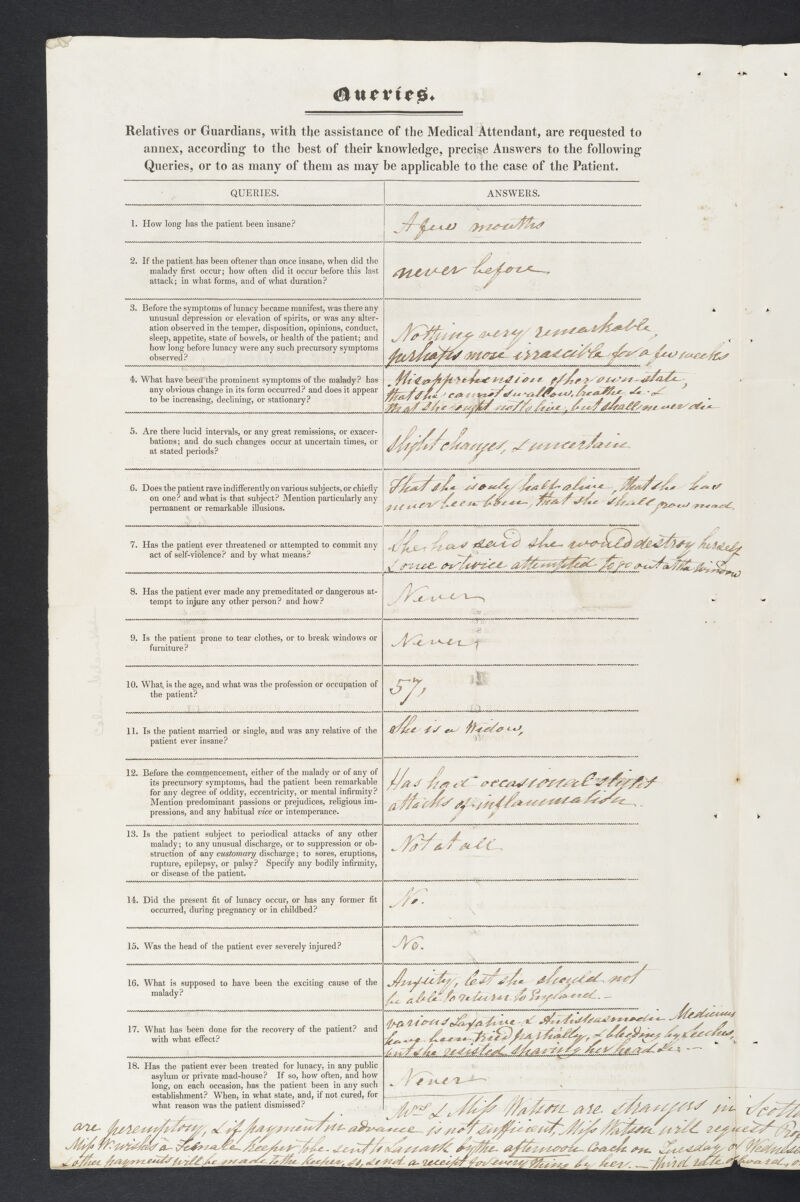 Queries.
Relatives or Guardians, with the assistance of the Medical Attendant, are requested to
annex, according to the best of their knowledge, precise Answers to the following
Queries, or to as many of them as may be applicable to the case of the Patient.
QUERIES.
ANSWERS.
1. How long has the patient been insane?
A few months
2. If the patient has been oftener than once insane, when did the
malady first occur; how often did it occur before this last
attack; in what forms, and of what duration?
never before
3. Before the symptoms of lunacy became manifest, was there any
unusual depression or elevation of spirits, or was any alter-
ation observed in the temper, disposition, opinions, conduct,
sleep, appetite, state of bowels, or health of the patient; and
how long before lunacy were any such precursory symptoms
observed?
Nothing very remarkable,
perhaps more irrascible for a few weeks
4. What have been the prominent symptoms of the malady? has
any obvious change in its form occurred? and does it appear
to be increasing, declining, or stationary?
Misapprehension of her own state,
that she cannot swallow, breathe &c &
that she ought not to live, but shall never die
5. Are there lucid intervals, or any great remissions, or exacer-
bations; and do such changes occur at uncertain times, or
at stated periods?
Slight changes, & uncertain
6. Does the patient rave indifferently on various subjects, or chiefly
on one? and what is that subject? Mention particularly any
permanent or remarkable illusions.
That she is only half alive, that she has
never been born, that she shall grow mad.
7. Has the patient ever threatened or attempted to commit any
act of self-violence? and by what means?
She has said she would destroy herself
& once or twice attempted to go out at the window
8. Has the patient ever made any premeditated or dangerous at-
tempt to injure any other person? and how?
Never
9. Is the patient prone to tear clothes, or to break windows or
furniture?
Never,
10. What is the age, and what was the profession or occupation of
the patient?
57,
11. Is the patient married or single, and was any relative of the
patient ever insane?
She is a Widow,
12. Before the commencement, either of the malady or of any of
its precursory symptoms, had the patient been remarkable
for any degree of oddity, eccentricity, or mental infirmity?
Mention predominant passions or prejudices, religious im-
pressions, and any habitual vice or intemperance.
Has had occasional slight
attacks of inflammation.
13. Is the patient subject to periodical attacks of any other
malady; to any unusual discharge, or to suppression or ob-
struction of any customary discharge; to sores, eruptions,
rupture, epilepsy, or palsy? Specify any bodily infirmity,
or disease of the patient.
Not at all
14. Did the present fit of lunacy occur, or has any former fit
occurred, during pregnancy or in childbed?
No.
15. Was the head of the patient ever severely injured?
No.
16. What is supposed to have been the exciting cause of the
malady?
Anxiety, lest she should not
be able to return to England.
17. What has been done for the recovery of the patient? and
with what effect?
various Laxative & Antispasmodic Medicines
have been tried partially, & bleeding by Leeches,
but she resisted shaving her head &c.
18. Has the patient ever been treated for lunacy, in any public
asylum or private mad-house? If so, how often, and how
long, on each occasion, has the patient been in any such
establishment? When, in what state, and, if not cured, for
what reason was the patient dismissed?
Never
Mrs & Miss Watson are strangers in Scotl
are peremptory, & if payment in advance is not sufficient, Miss Watson will request
Miss W. wishes a Female Keeper to be sent to Lanark by the afternoon Coach on Tuesday or Wednes
& other payments will be made to the keeper, so, send a receipt for every thing by her. — third rate